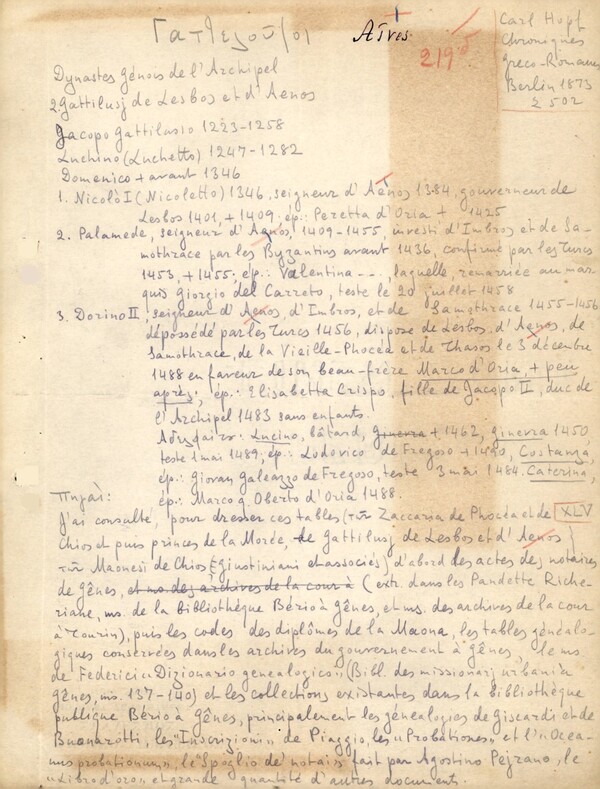 Γατιελοῦζοι
Αἶνος
219
Carl Hopf
Chroniques
Greco-Romanes
Berlin 1873
Σ 502
Dynastes génois de l'Archipel
2. Gattilusj de Lesbos et d'Aenos
Jacopo Gattilusio 1223-1258
Luchino (Luchetto) 1247-1282
Domenico + avant 1346
1. Nicolò I (Nicoletto) 1346, seigneur d'Aenos 1384, gouverneur de
Lesbos 1401, + 1409. ép.: Peretta d'Oria + 1425
2. Palamede, seigneur d'Aenos, 1409-1455, investi d'Imbros et de Sa-
mothrace par les Byzantins avant 1436, confirmé par les Turcs
1453, + 1455; ép.: Valentina ---, laquelle, remarriée au mar-
quis Giorgio del Carreto, teste le 20 juillet 1458
3. Dorino II, seigneur d'Aenos, d'Imbros, et de Samothrace 1455-1456
dépossédé par les Turcs 1456, dispose de Lesbos, d'Aenos, de
Samothrace, de la Vieille-Phocea et de Thasos le 3 décembre
1488 en faveur de son beau-frère Marco d'Oria, + peu
après; ép.: Elisabetta Crispo, fille de Jacopo II, duc de
l'Archipel 1483 sans enfants.
Ἀδελφαί: Lucino, bâtard, Ginevra + 1462, ginevra 1450,
teste 1 mai 1489; ép.: Lodovico de Fregoso + 1490, Costanza,
ép.: Giovan Galeazzo de Fregoso, teste 3 mai 1484. Caterina,
ép.: Marco q. Oberto d'Oria 1488.
Πηγαί:
J'ai consulté, pour dresser ces tables (τῶν Zaccaria de Phocéa et de XLV
Chios et puis princes de la Morée, de Gattilusj de Lesbos et d'Aenos
τῶν Maonesi de Chios {Giustiniani et associés} d'abord des actes des notaires
de Gênes, et ms. des archives de la cour à (extr. dans les Pandette Riche-
riane, ms. de la bibliothèque Bério à Gênes, et ms. des archives de la cour
à Tourin), puis les codes des diplômes de la Maona, les tables généalo-
giques conservées dans les archives du gouvernement à Gênes, le ms.
de Federici "Dizionario genealogico", (Bibl. des missionarj urbani à
Gênes, ms. 137-140) et les collections existantes dans la bibliothèque
publique Bério à Gênes, principalement les généalogies de Giscardi et de
Buonarotti, les "Inscrizioni" de Piaggio, les "Probationes", et l'"Ocea-
nus probationum", le "Spoglio de' notai" fait par Agostino Pejrano, le
"Libro d'oro" et grande quantité d'autres documents.